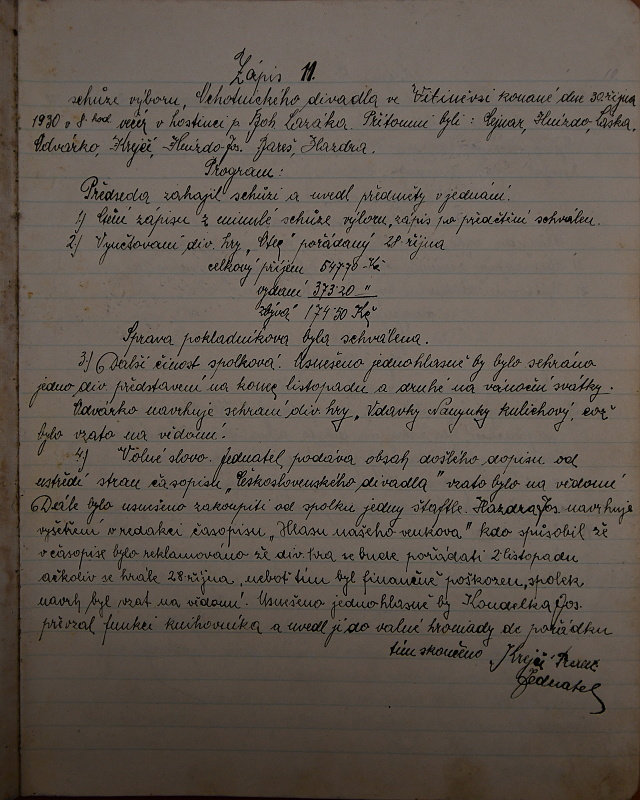 Zápis 11.
schůze výboru, Ochotnického divadla ve Vitiněvsi konané dne 30. října
1930 v 8. hod večer v hostinci p. Boh. Lazáka. Přítomni byli: Cejnar, Hnízdo, Laska,
Odvárko, Krejčí, Hnízdo Jos. Bareš, Hazdra.
Program:
Předseda zahájil schůzi a uvedl předměty v jednání.
1) Čtení zápisu z minulé schůze výboru, zápis po přečtění schválen.
2) Vyučtovaní div. hry „Otec" pořádaný 28 října
celkový příjem 547 70 Kč
vydaní 373 20 "
zbývá 174 50 Kč
Správa pokladníkova byla schválena.
3) Další činost spolková. Usnešeno jednohlasně by bylo sehráno
jedno div. představení na konec listopadu a druhé na vánoční svátky.
Odvárko navrhuje sehraní div. hry „Vdavky Nanynky kulichový, což
bylo vzato na vědomí.
4) Volné slovo. Jednatel podáva obsah došlého dopisu od
ustředí stran časopisu „Československého divadla" vzato bylo na vědomí
Dále bylo usnešeno zakoupiti od spolku jedny štafle. Hazdra Jos. navrhuje
vyšetření v redakci časopisu „Hlasu našeho venkova" kdo spůsobil že
v časopise bylo reklamováno že div. hra se bude pořádati 2 listopadu
ačkoliv se hrále 28. října, neboť tím byl finančně poškozen spolek
navrh byl vzat na vědomí. Usnešeno jednohlasně by Koudelka Jos.
přivzal funkci knihovníka a uvedl ji do valné hromady do pořádku
tím skončeno Krejčí
Jednatel